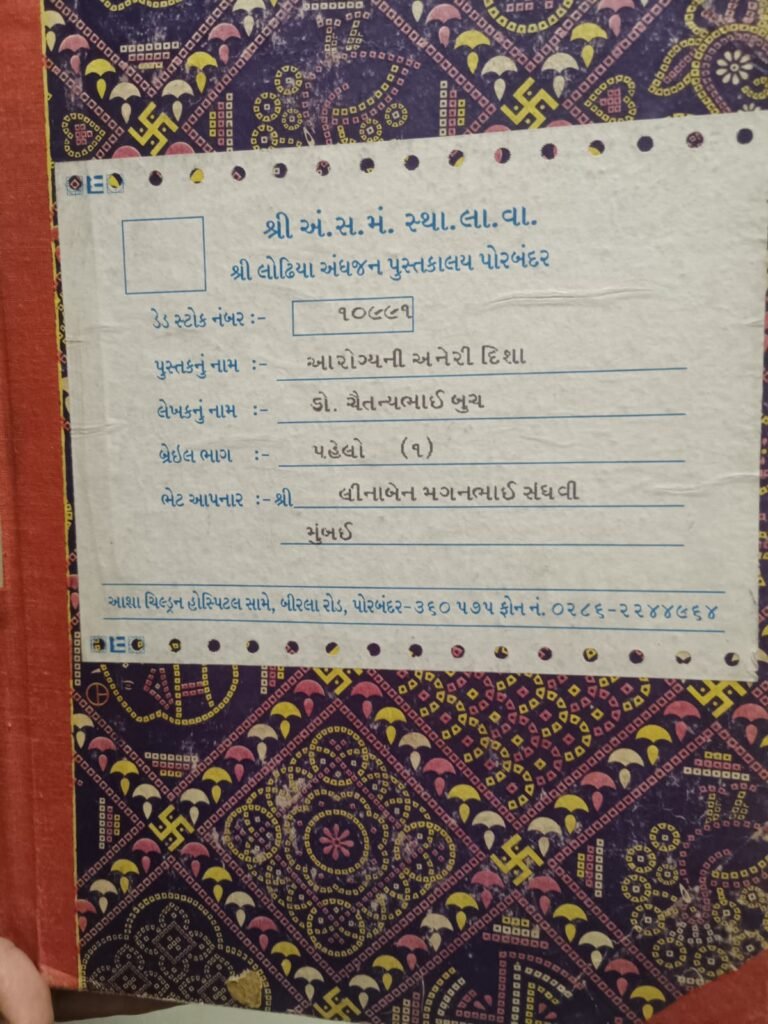 શ્રી અં.સ.મં. સ્થા.લા.વા.
શ્રી લોઢિયા અંધજન પુસ્તકાલય પોરબંદર
ડેડ સ્ટોક નંબર :- ૧૦૯૯૧
પુસ્તકનું નામ :- આરોગ્યની અનેરી દિશા
લેખકનું નામ :- ડો. ચૈતન્યભાઈ બુચ
બ્રેઇલ ભાગ :- પહેલો (૧)
ભેટ આપનાર :- શ્રી લીનાબેન મગનભાઈ સંઘવી
મુંબઈ
આશા ચિલ્ડ્રન હોસ્પિટલ સામે, બીરલા રોડ, પોરબંદર-૩૬૦ ૫૭૫ ફોન નં. ૦૨૮૬-૨૨૪૪૯૬૪